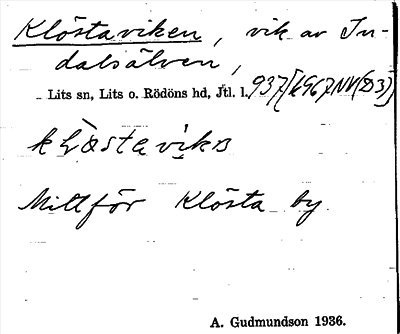 Klöstaviken, vik av In-
dalsälven,
Lits sn, Lits o. Rödöns hd, Jtl. l. 937
klòstavikɐn
Mittför Klösta by.
A. Gudmundson 1936.